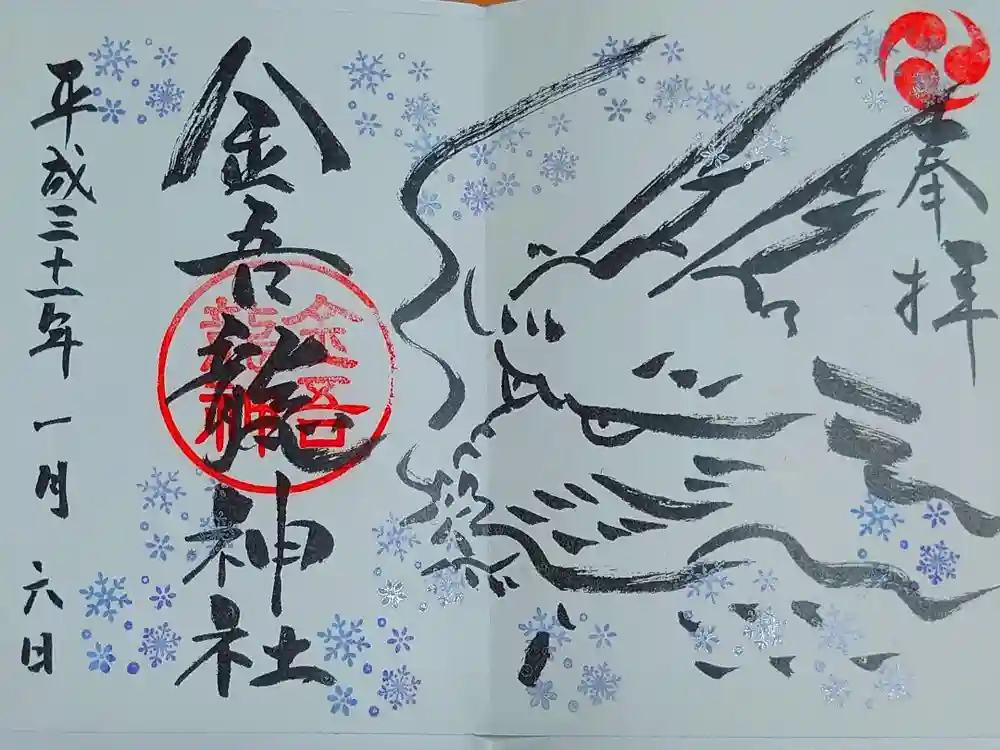 奉拝
金吾龍神社
平成三十一年 一月 六日
金吾
龍神